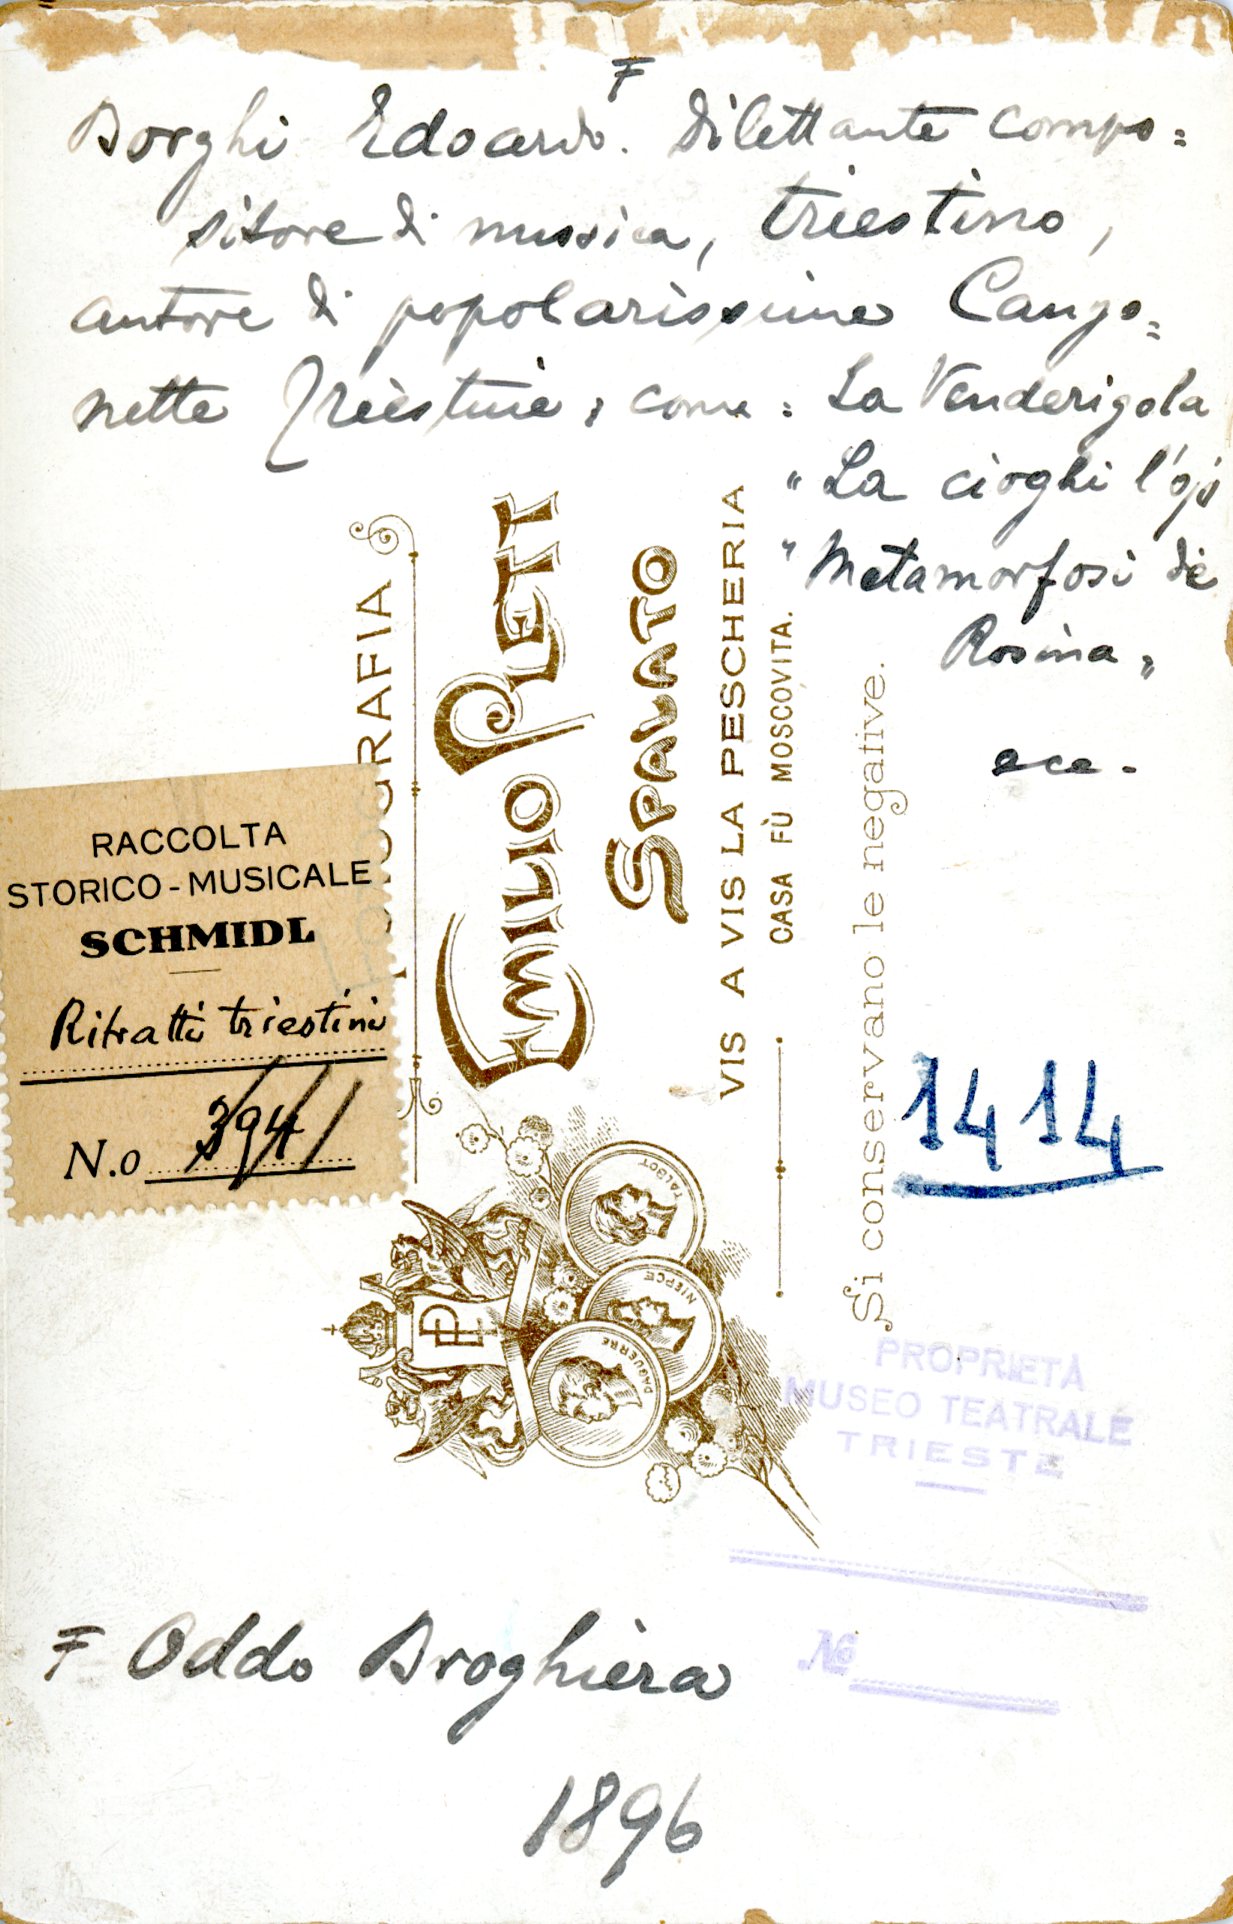 F
Borghi Edoardo. Dilettante compo=
sitore di musica, triestino,
autore di popolarissime Canzo=
nette Triestine, come: La Venderigola
" La cioghi l'ojo
" Metamorfosi de
Rosina "
ecc.
FOTOGRAFIA
EMILIO PLETT
SPALATO
VIS A VIS LA PESCHERIA
CASA FÙ MOSCOVITA.
Si conservano le negative.
RACCOLTA
STORICO-MUSICALE
SCHMIDL
Ritratti triestini
N.o 394/
1414
TALBOT
NIEPCE
DAGUERRE
PL
PROPRIETÀ
MUSEO TEATRALE
TRIESTE
No
F Oddo Broghiera
1896